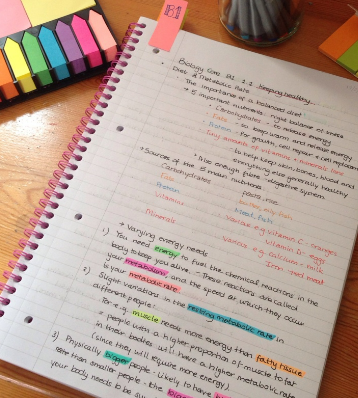 B1
Biology Core B1 1.1 Keeping healthy
Diet & Metabolic Rate
The importance of a balanced diet
→ 5 important nutrients - right balance of these
• Carbohydrates - to release energy
• Fats - to keep warm and release energy
• Protein - for growth, cell repair & cell replacement
• Tiny amounts of vitamins & minerals ions
- to keep skin, bones, blood and
everything else generally healthy
• Also enough fibre
→ Sources of the 5 main nutrients
Carbohydrates Pasta, rice
Fats butter, oily fish
Protein Meat, fish
Vitamins Various e.g. vitamin C - oranges
vitamin D - eggs
Minerals Various e.g. calcium - milk
Iron - red meat
→ Varying energy needs
1) You need energy to fuel the chemical reactions in the
body to keep you alive. These reactions are called
your metabolism and the speed at which they occur
is your metabolic rate
2) Slight variations in the resting metabolic rate in
different people:
For e.g. muscle needs more energy than fatty tissue
∴ people with a higher proportion of muscle to fat
in their bodies will have a higher metabolic rate
(since they will require more energy)
3) Physically bigger people - likely to have
rate than smaller people - the
your body needs to be